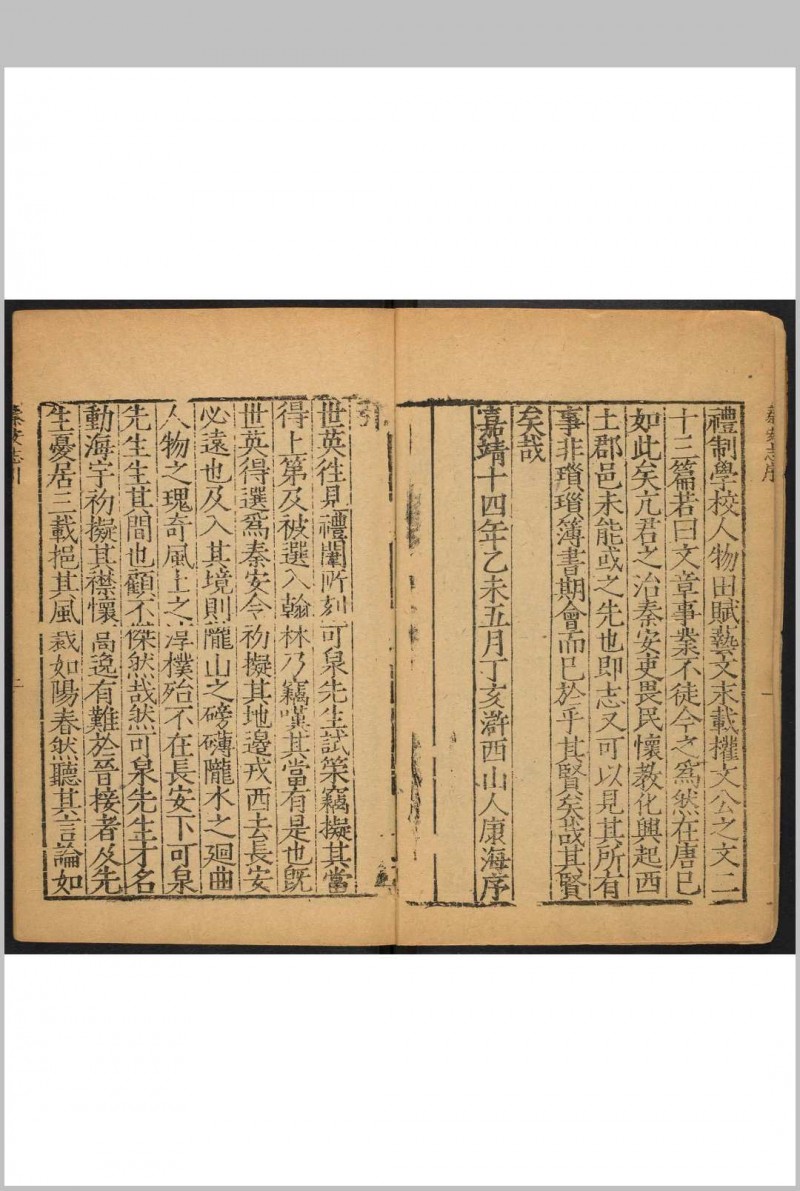 秦安志序
禮制學校人物田賦藝文末載權文公之文二
十三篇若曰文章事業不徒今之爲然在唐已
如此矣亢君之治秦安吏畏民懷教化興起西
土郡邑未能或之先也即志又可以見其所有
事非瑣瑣簿書期會而已於乎其賢矣哉其賢
矣哉
嘉靖十四年乙未五月丁亥滸西山人康海序
引
世英徃見禮闈所刻可泉先生試策竊擬其當
得上第及被選入翰林乃竊嘆其當有是也旣
世英得選爲秦安令初擬其地邊戎西去長安
必遠也及入其境則隴山之磅礴隴水之廻曲
人物之瑰奇風土之淳樸殆不在長安下可泉
先生生其間也顧不傑然哉然可泉先生才名
動海宇初擬其襟懷高逸有難於晉接者及先
生憂居三載挹其風裁如陽春然聽其言論如
秦安志引